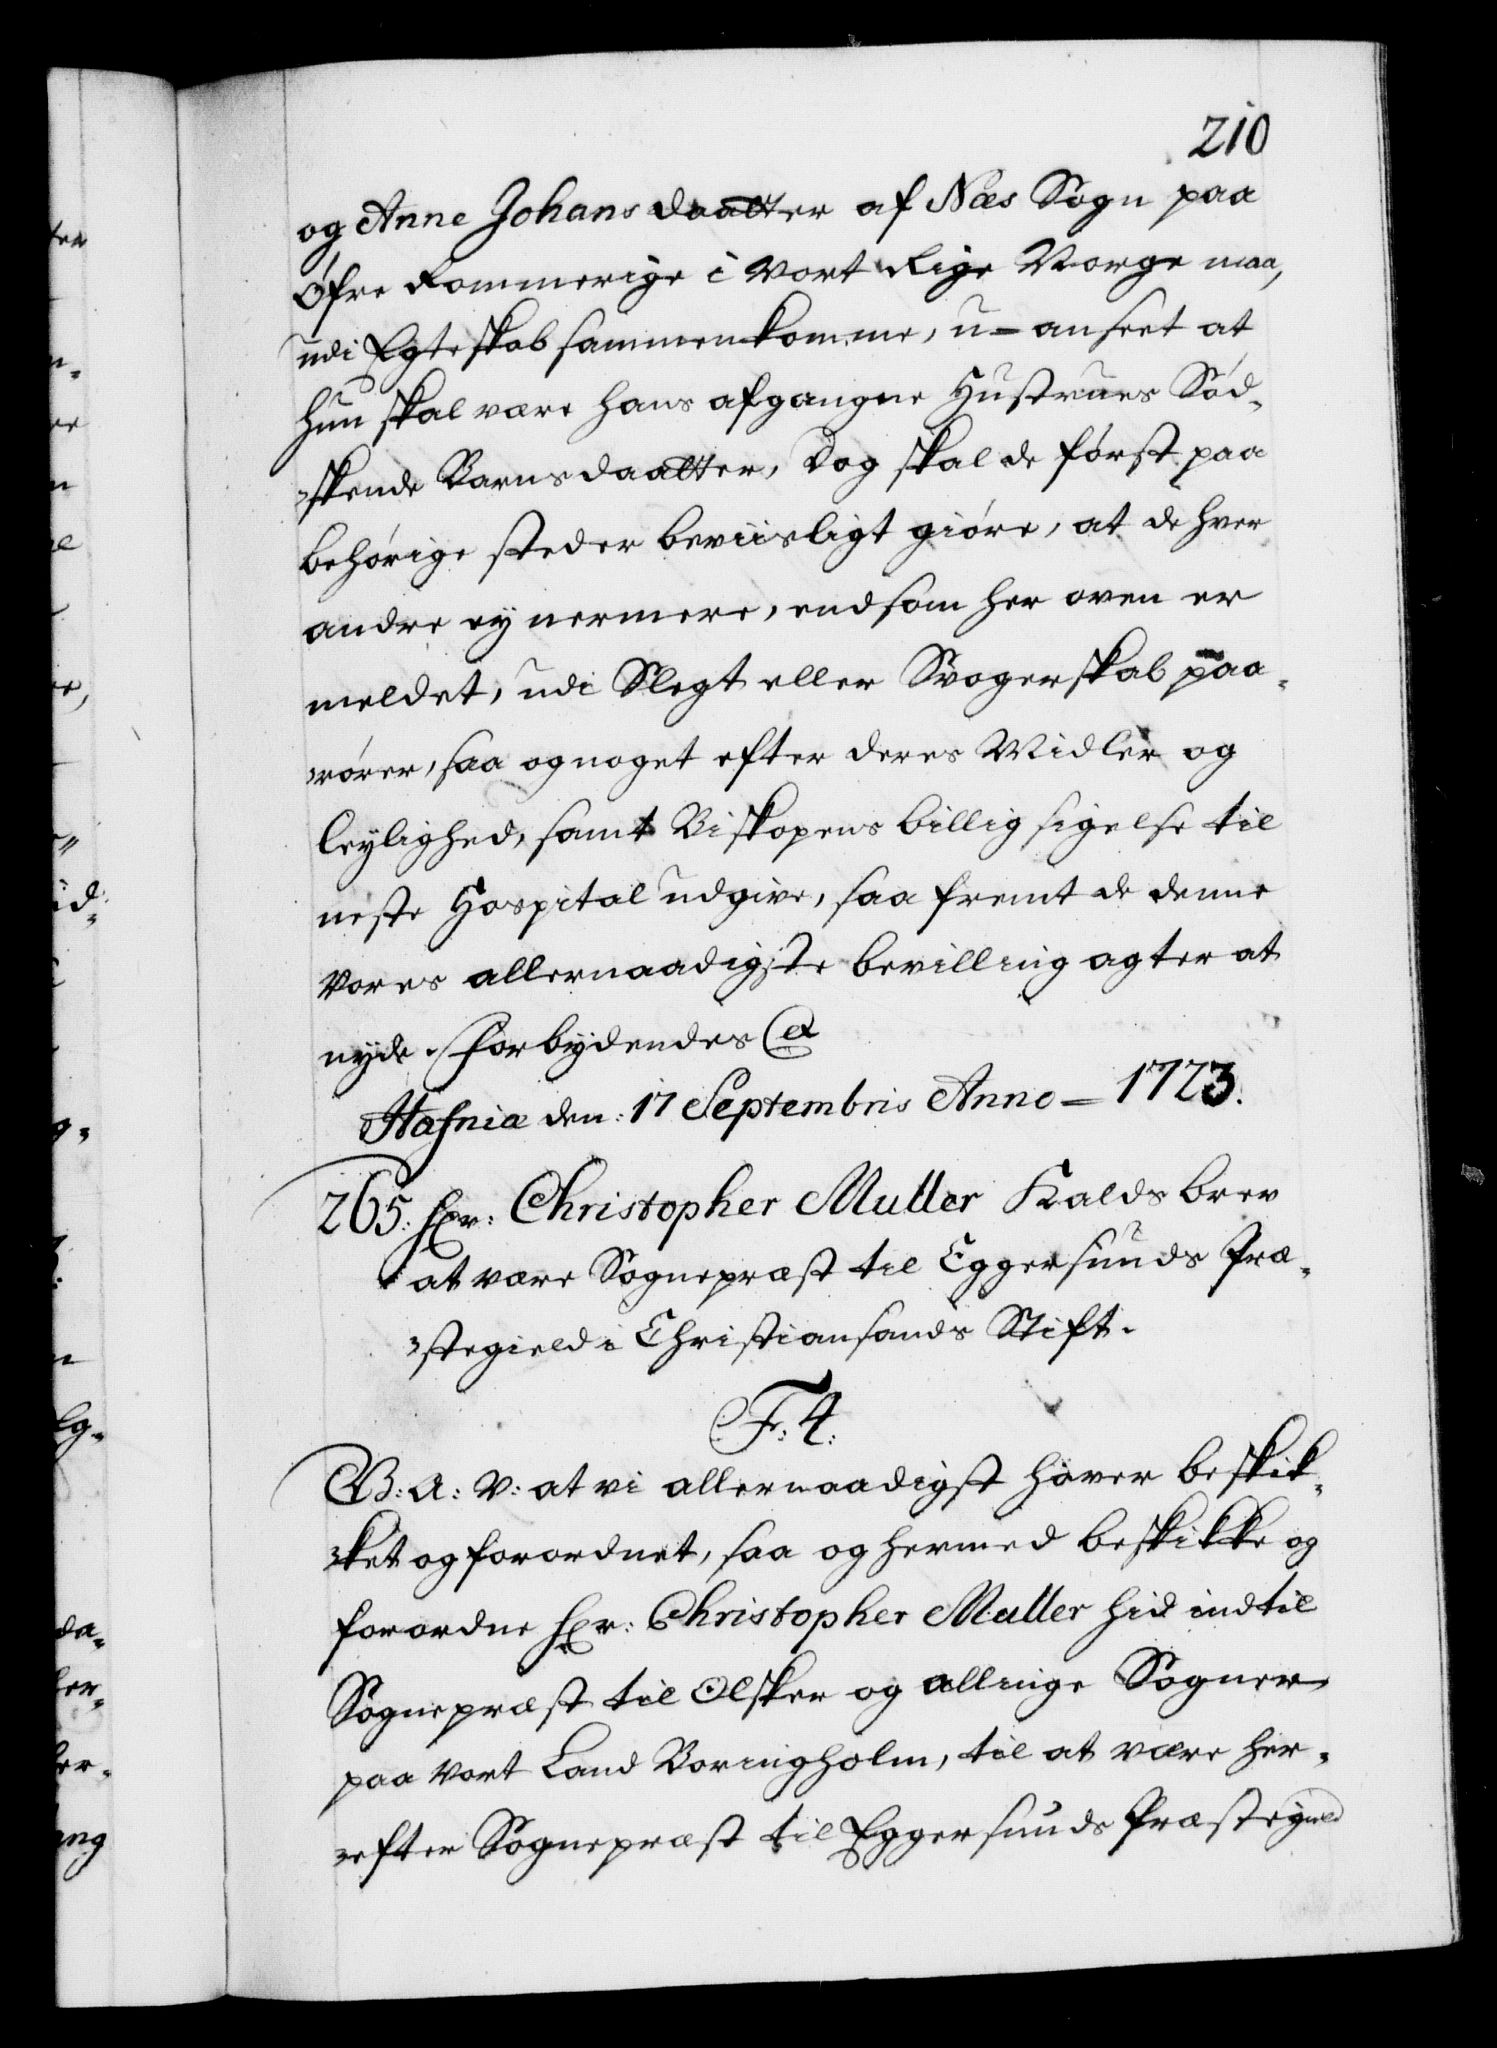 210
og Anne Johansdaatter af Næs Sogn paa
Øfre Rommerige i vort Rige Norge maa,
udi Egteskab sammenkomme, u-anseet at
hun skal være hans afgangne Hustrues Sød-
skende Barnsdaatter, dog skal de først paa
behørige steder beviisligt giøre, at de hver
andre ey nermere, end som her oven er
meldet, udi Slegt eller Svogerskab paa-
rører, saa og noget efter deres Midler og
leylighed, samt Biskopens billigsigelse til
neste Hospital udgive, saa fremt de denne
vores allernaadigste bevilling agter at
nyde. Forbydendes &
Hafniæ den: 17 Septembris Anno = 1723.
265. Hr: Christopher Muller Kaldsbrev
at være Sognepræst til Eggersunds Præ-
stegield i Christiansands Stift.
F: 4:
G: A: V: at vi allernaadigst haver beskik-
ket og forordnet, saa og hermed beskikke og
forordne Hr: Christopher Muller hid indtil
Sognepræst til Olsker og Allinge Sogner
paa vort Land Boringholm, til at være her-
efter Sognepræst til Eggersunds Præstegield